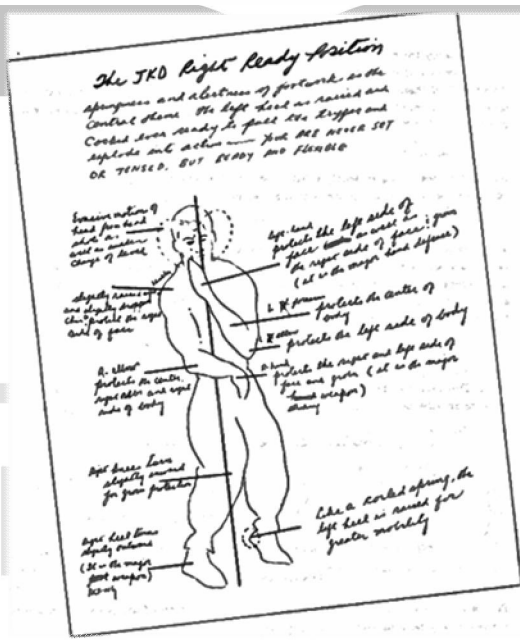 The JKD Right Ready Position
springiness and alertness of footwork is the
central theme. The left heel is raised and
cocked ever ready to pull the trigger and
explode into action. You ARE NEVER SET
OR TENSED, BUT READY AND FLEXIBLE
Evasive motion of
head from
as
well as
change of level
slightly raised
and slightly dropped
chin protect the right
side of face
R. elbow
protects the center,
right ribs and right
side of body
Right knee turns
slightly inward
for groin protection
Right heel turns
slightly outward
(It is the major
foot weapon)
Left hand
protects the left side of
face as well as
the right side of face; groin
(it is the major hand defense)
L. forearm
protects the center of
body
L. elbow
protects the left side of body
R. hand
protects the right and left side of
face and groin (it is the major
hand weapon)
Like a coiled spring, the
left heel is raised for
greater mobility